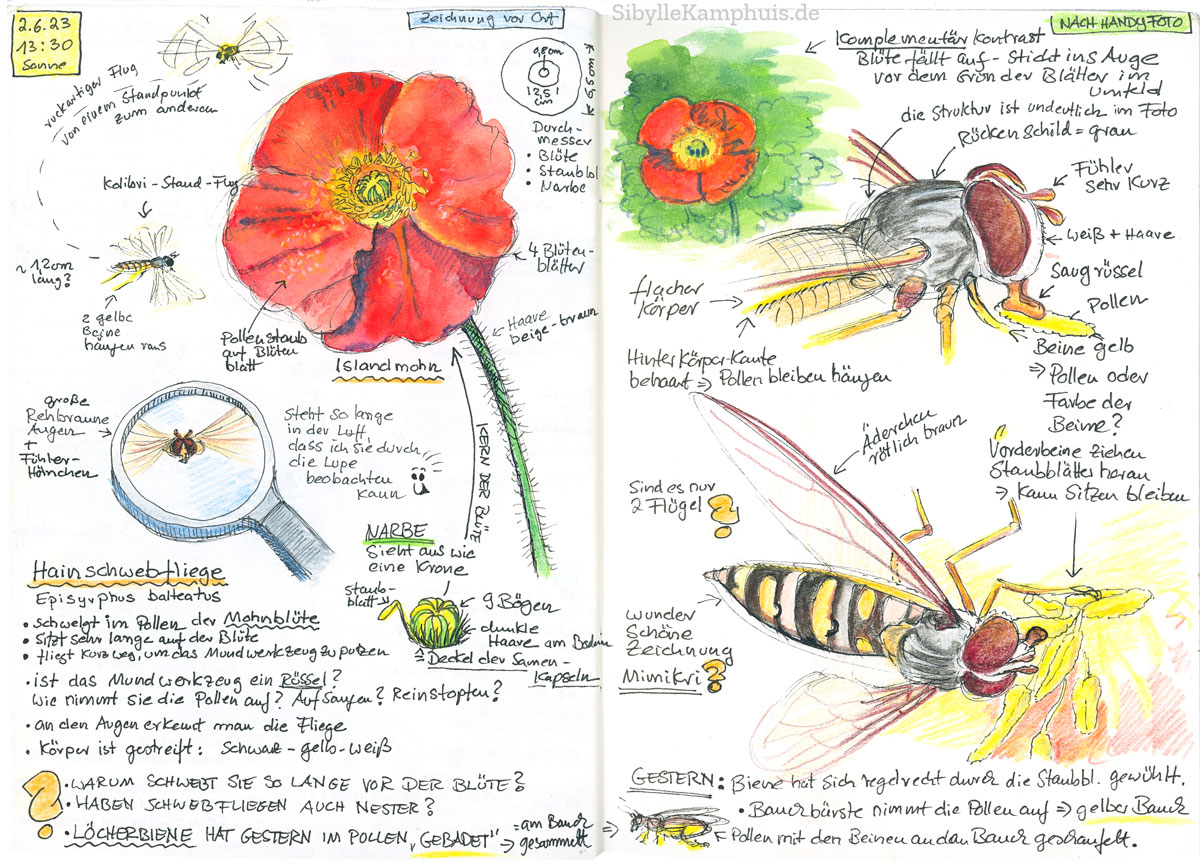 2.6.23
13:30
Sonne
Zeichnung vor Ort
ruckartiger Flug
von einem Standpunkt
zum anderen
Kolibri-Stand-Flug
~ 1,2 cm
lang?
2 gelbe
Beine
hängen raus
0,8 cm
12,5 cm
Durch-
messer
• Blüte
• Staubbl.
• Narbe
4 Blüten-
blätter
Pollenstaub
auf Blüten
blatt
Islandmohn
Haare
beige-braun
große
Rehbraune
Augen
+
Fühler-
Hörnchen
steht so lange
in der Luft,
dass ich sie durch
die Lupe
beobachten
kann
KERN DER BLÜTE
NARBE
Sieht aus wie
eine Krone
Staub-
blatt
9 Bögen
dunkle
Haare am Boden
= Deckel der Samen-
Kapseln
Hainschwebfliege
Episyrphus balteatus
• schwelgt im Pollen der Mohnblüte
• sitzt sehr lange auf der Blüte
• fliegt kurz weg, um das Mundwerkzeug zu putzen
• ist das Mundwerkzeug ein Rüssel?
Wie nimmt sie die Pollen auf? Aufsaugen? Reinstopfen?
• an den Augen erkennt man die Fliege
• Körper ist gestreift: Schwarz-gelb-weiß
? • WARUM SCHWEBT SIE SO LANGE VOR DER BLÜTE?
• HABEN SCHWEBFLIEGEN AUCH NESTER?
• LÖCHERBIENE HAT GESTERN IM POLLEN „GEBADET" ⇒ = am Bauch
gesammelt ⇒
SibylleKamphuis.de
NACH HANDYFOTO
Komplementär Kontrast
Blüte fällt auf - Sticht ins Auge
vor dem Grün der Blätter im
Umfeld
die Struktur ist undeutlich im Foto
Rückenschild = grau
Fühler
sehr kurz
weiß + Haare
Saugrüssel
Pollen
flacher
Körper
Hinterkörper-Kante
behaart ⇒ Pollen bleiben hängen
Beine gelb
⇒ Pollen oder
Farbe der
Beine?
Äderchen
rötlich braun
Vorderbeine ziehen
Staubblätter heran
⇒ kann Sitzen bleiben
Sind es nur
2 Flügel?
wunder
schöne
Zeichnung
Mimikri?
GESTERN: Biene hat sich regelrecht durch die Staubbl. gewühlt.
• Bauchbürste nimmt die Pollen auf ⇒ gelber Bauch
Pollen mit den Beinen an den Bauch geschaufelt.